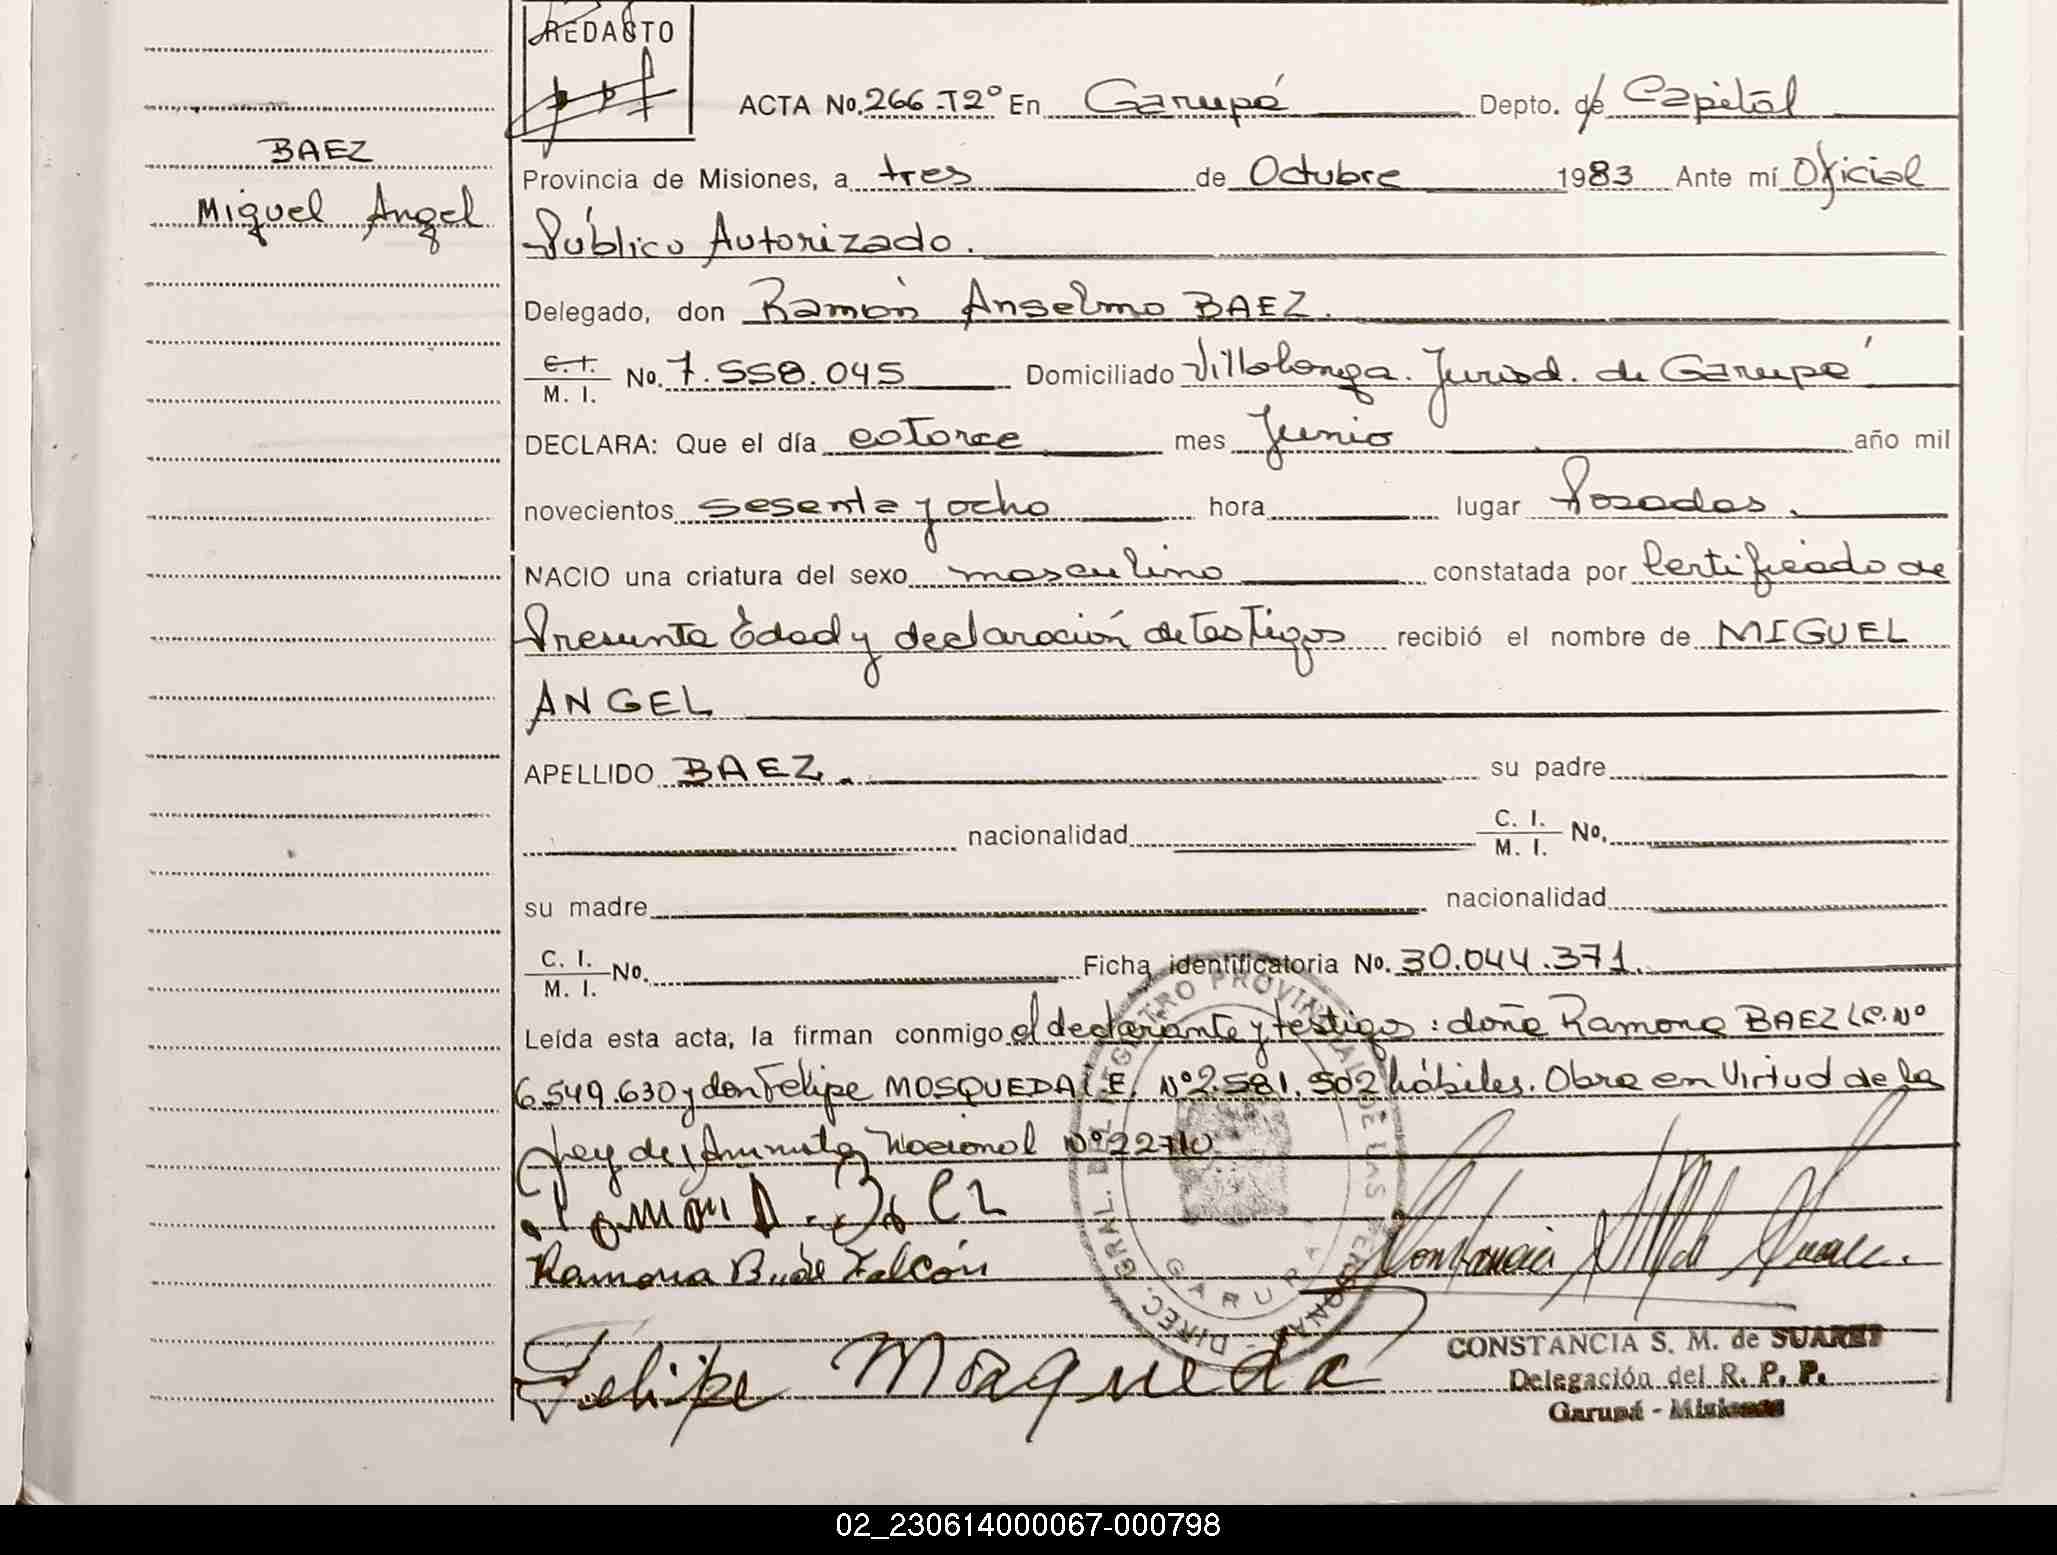 REDACTO
ACTA No. 266-T2° En Garupá Depto. de Capital
BAEZ
Miguel Angel
Provincia de Misiones, a tres de Octubre 1983 Ante mí Oficial
Público Autorizado.
Delegado, don Ramón Anselmo BAEZ.
C. I. / M. I. No. 7.558.045 Domiciliado Villalonga. Jurisd. de Garupá
DECLARA: Que el día catorce mes Junio año mil
novecientos sesenta y ocho hora lugar Posadas.
NACIO una criatura del sexo masculino constatada por Certificado de
Presunta Edad y declaración de testigos recibió el nombre de MIGUEL
ANGEL
APELLIDO BAEZ. su padre
nacionalidad C. I. / M. I. No.
su madre nacionalidad
C. I. / M. I. No. Ficha identificatoria No. 30.044.371.
Leída esta acta, la firman conmigo el declarante y testigos: doña Ramona BAEZ L.C. N°
6.549.630 y don Felipe MOSQUEDA L.E. N° 2.581.502 hábiles. Obra en Virtud de la
Ley de Amnistía Nacional N° 22710.
Ramona B. de Falcón
Felipe Mosqueda
DIREC. GRAL. DEL REGISTRO PROVINCIAL DE LAS PERSONAS
GARUPA
CONSTANCIA S. M. de SUAREZ
Delegación del R. P. P.
Garupá - Misiones
02_230614000067-000798